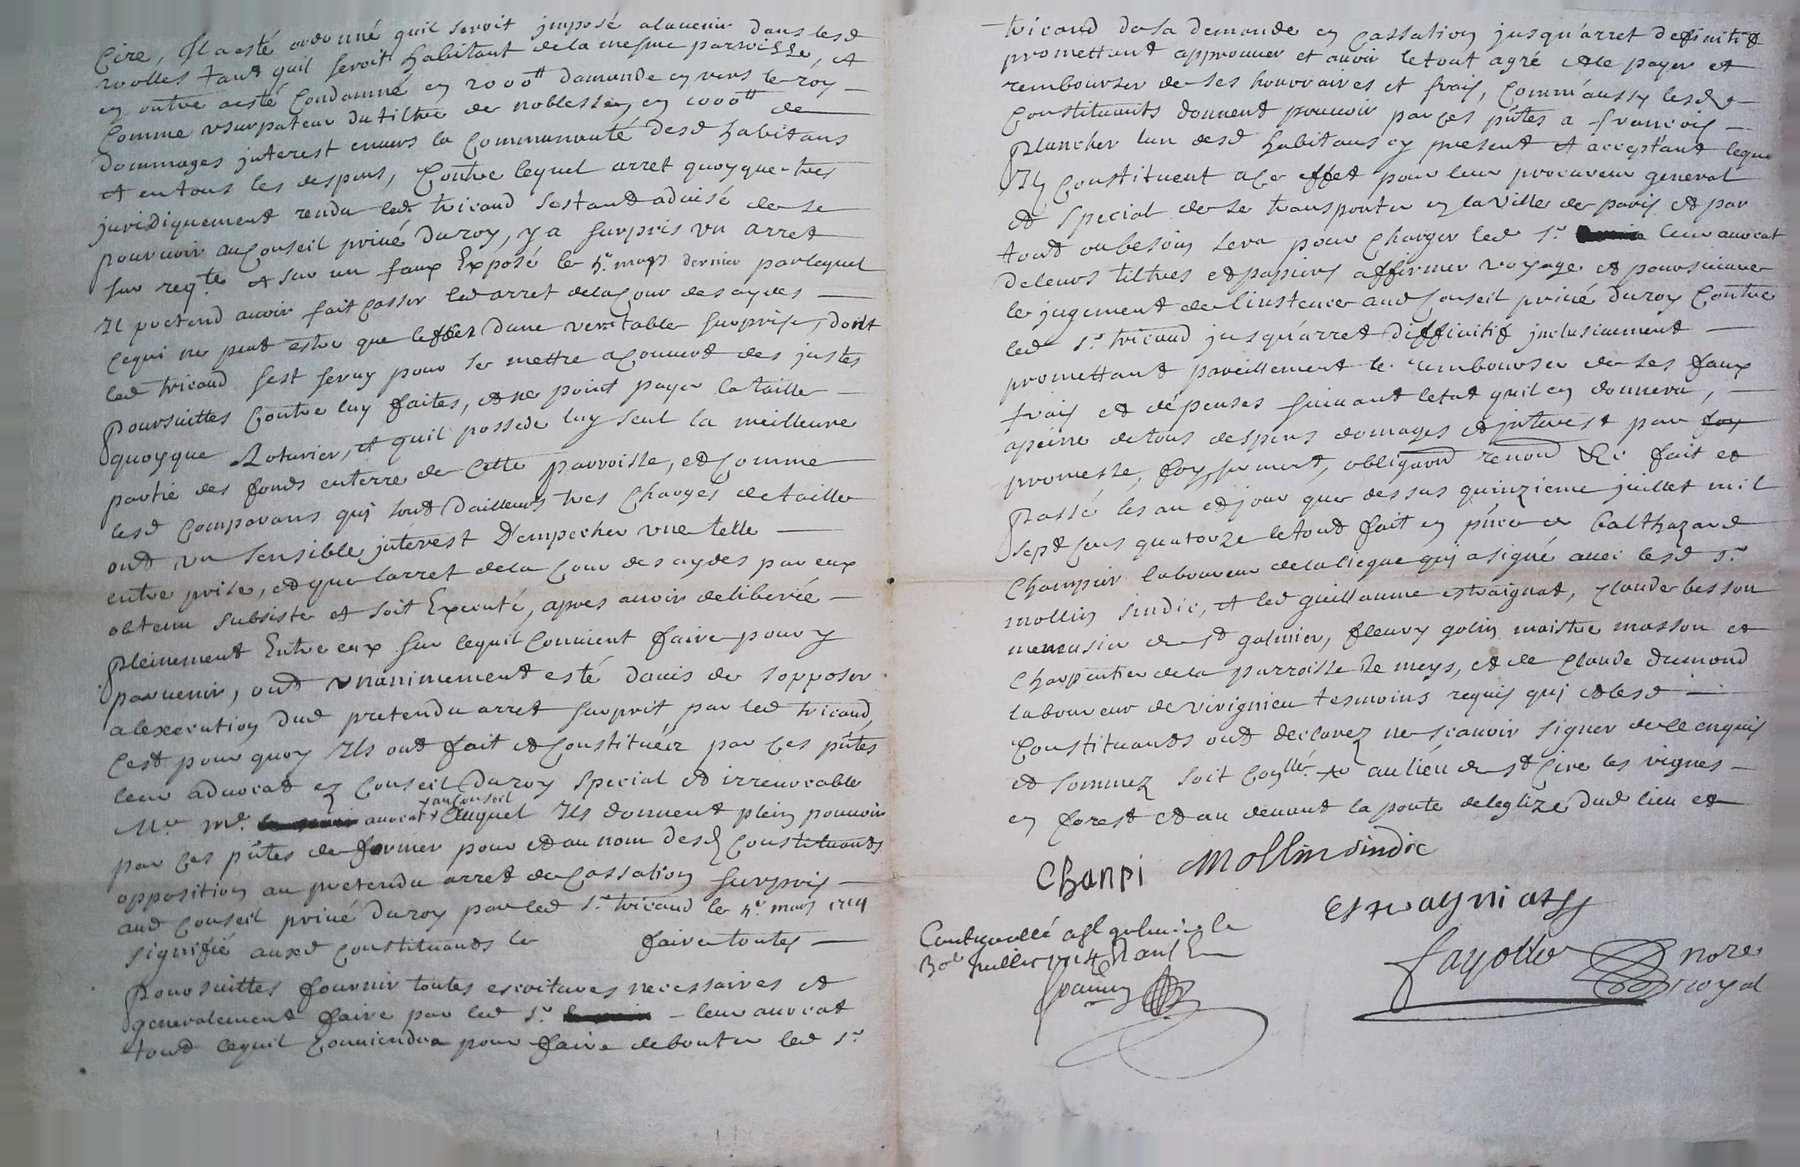 Cire, Il a esté ordonné quil seroit imposé alavenir dans lesd
roolles tant quil seroit habitant dela mesme parroisse, et
en outre a esté Condamné en 2000tt damande en vers le roy
Comme usurpateur du tiltre de noblesse, en 1000tt de
dommages interest envers la Communauté desd habitans
et en tous les despens, Contre lequel arret quoyque tres
juridiquement rendu led tricaud sestant advisé de se
pourvoir au Conseil privé du roy, y a surpris un arret
sur reqte et sur un faux Exposé le 5e mars dernier par lequel
Il pretend avoir fait Casser led arret dela Cour des aydes
Cequi ne peut estre que leffet dune veritable surprise, dont
led tricaud sest servy pour se mettre a Couvert des justes
poursuittes Contre luy faites, et ne point payer la taille
quoyque Roturier, et quil possede luy seul la meilleure
partie des fonds en terre de Cette parroisse, et Comme
lesd Comparans qui sont dailleurs tres Chargés de taille
ont un sensible interest D'empecher une telle
entre prise, et que larret dela Cour des aydes par eux
obtenu subsiste et soit Executé, apres avoir deliberée
pleinement Entre eux sur lequil Convient faire pour y
parvenir, ont unanimement esté davis de sopposer
alexecution dud pretendu arret surprit par led tricaud,
Cest pour quoy Ils ont fait et Constituéez par Ces pntes
leur advocat en Conseil du roy special et irrevocable
Me avocat au Conseil auquel Ils donnent plein pouvoir
par Ces pntes de former pour et au nom desd Constituants
opposition au pretendu arret de Cassation surpris
aud Conseil privé du roy par led sr tricaud le 5e mars 1714
signifié auxd Constituants le faire toutes
poursuittes fournir toutes escritures necessaires et
generalement faire par led sr leur avocat
tout cequil Conviendra pour faire debouter led sr
tricaud de sa demande en Cassation jusqu'arret definitif
promettant approuver et avoir le tout agré et le payer et
rembourser de ses honnoraires et frais, Comm'aussy lesd
Constituants donnent pouvoir par Ces pntes a francois
plancher lun desd habitans cy present et acceptant lequel
Ils Constituent a Ce effet pour leur procureur general
et special de se transporter en la ville de paris et par
tout ou besoin sera pour Charger led sr leur avocat
de leurs tiltres et papiers affirmer voyage et poursuivre
le jugement de linstance aud Conseil privé du roy Contre
led sr tricaud jusqu'arret diffinitif inclusivement
promettant pareillement le rembourser de ses faux
frais et depenses suivant letat quil en donnera,
apeine de tous despens domages et interest par
promesse, foy, serment, obligaond renond &c fait et
passé les an et jour que dessus quinzieme juillet mil
sept Cens quatorze le tout fait en pnce de balthazard
Champier laboureur de qui a signé avec lesd sr
mollin sindic, et led guillaume estraignat, claude besson
menusier de st galmier, fleury golin maistre masson et
Charpentier de la parroisse de meys, et de Claude dumond
laboureur de virignieu tesmoins requis qui et lesd
Constituants ont declarez ne scavoir signer de ce enquis
et sommez soit Conllé au lieu de st Cire les vignes
en forest et au devant la porte de leglize dud lieu et
Chanpi Mollin sindic
Estrayniat
Controollé a st galmier le
30e juillet 1714
fayolle nore
royal